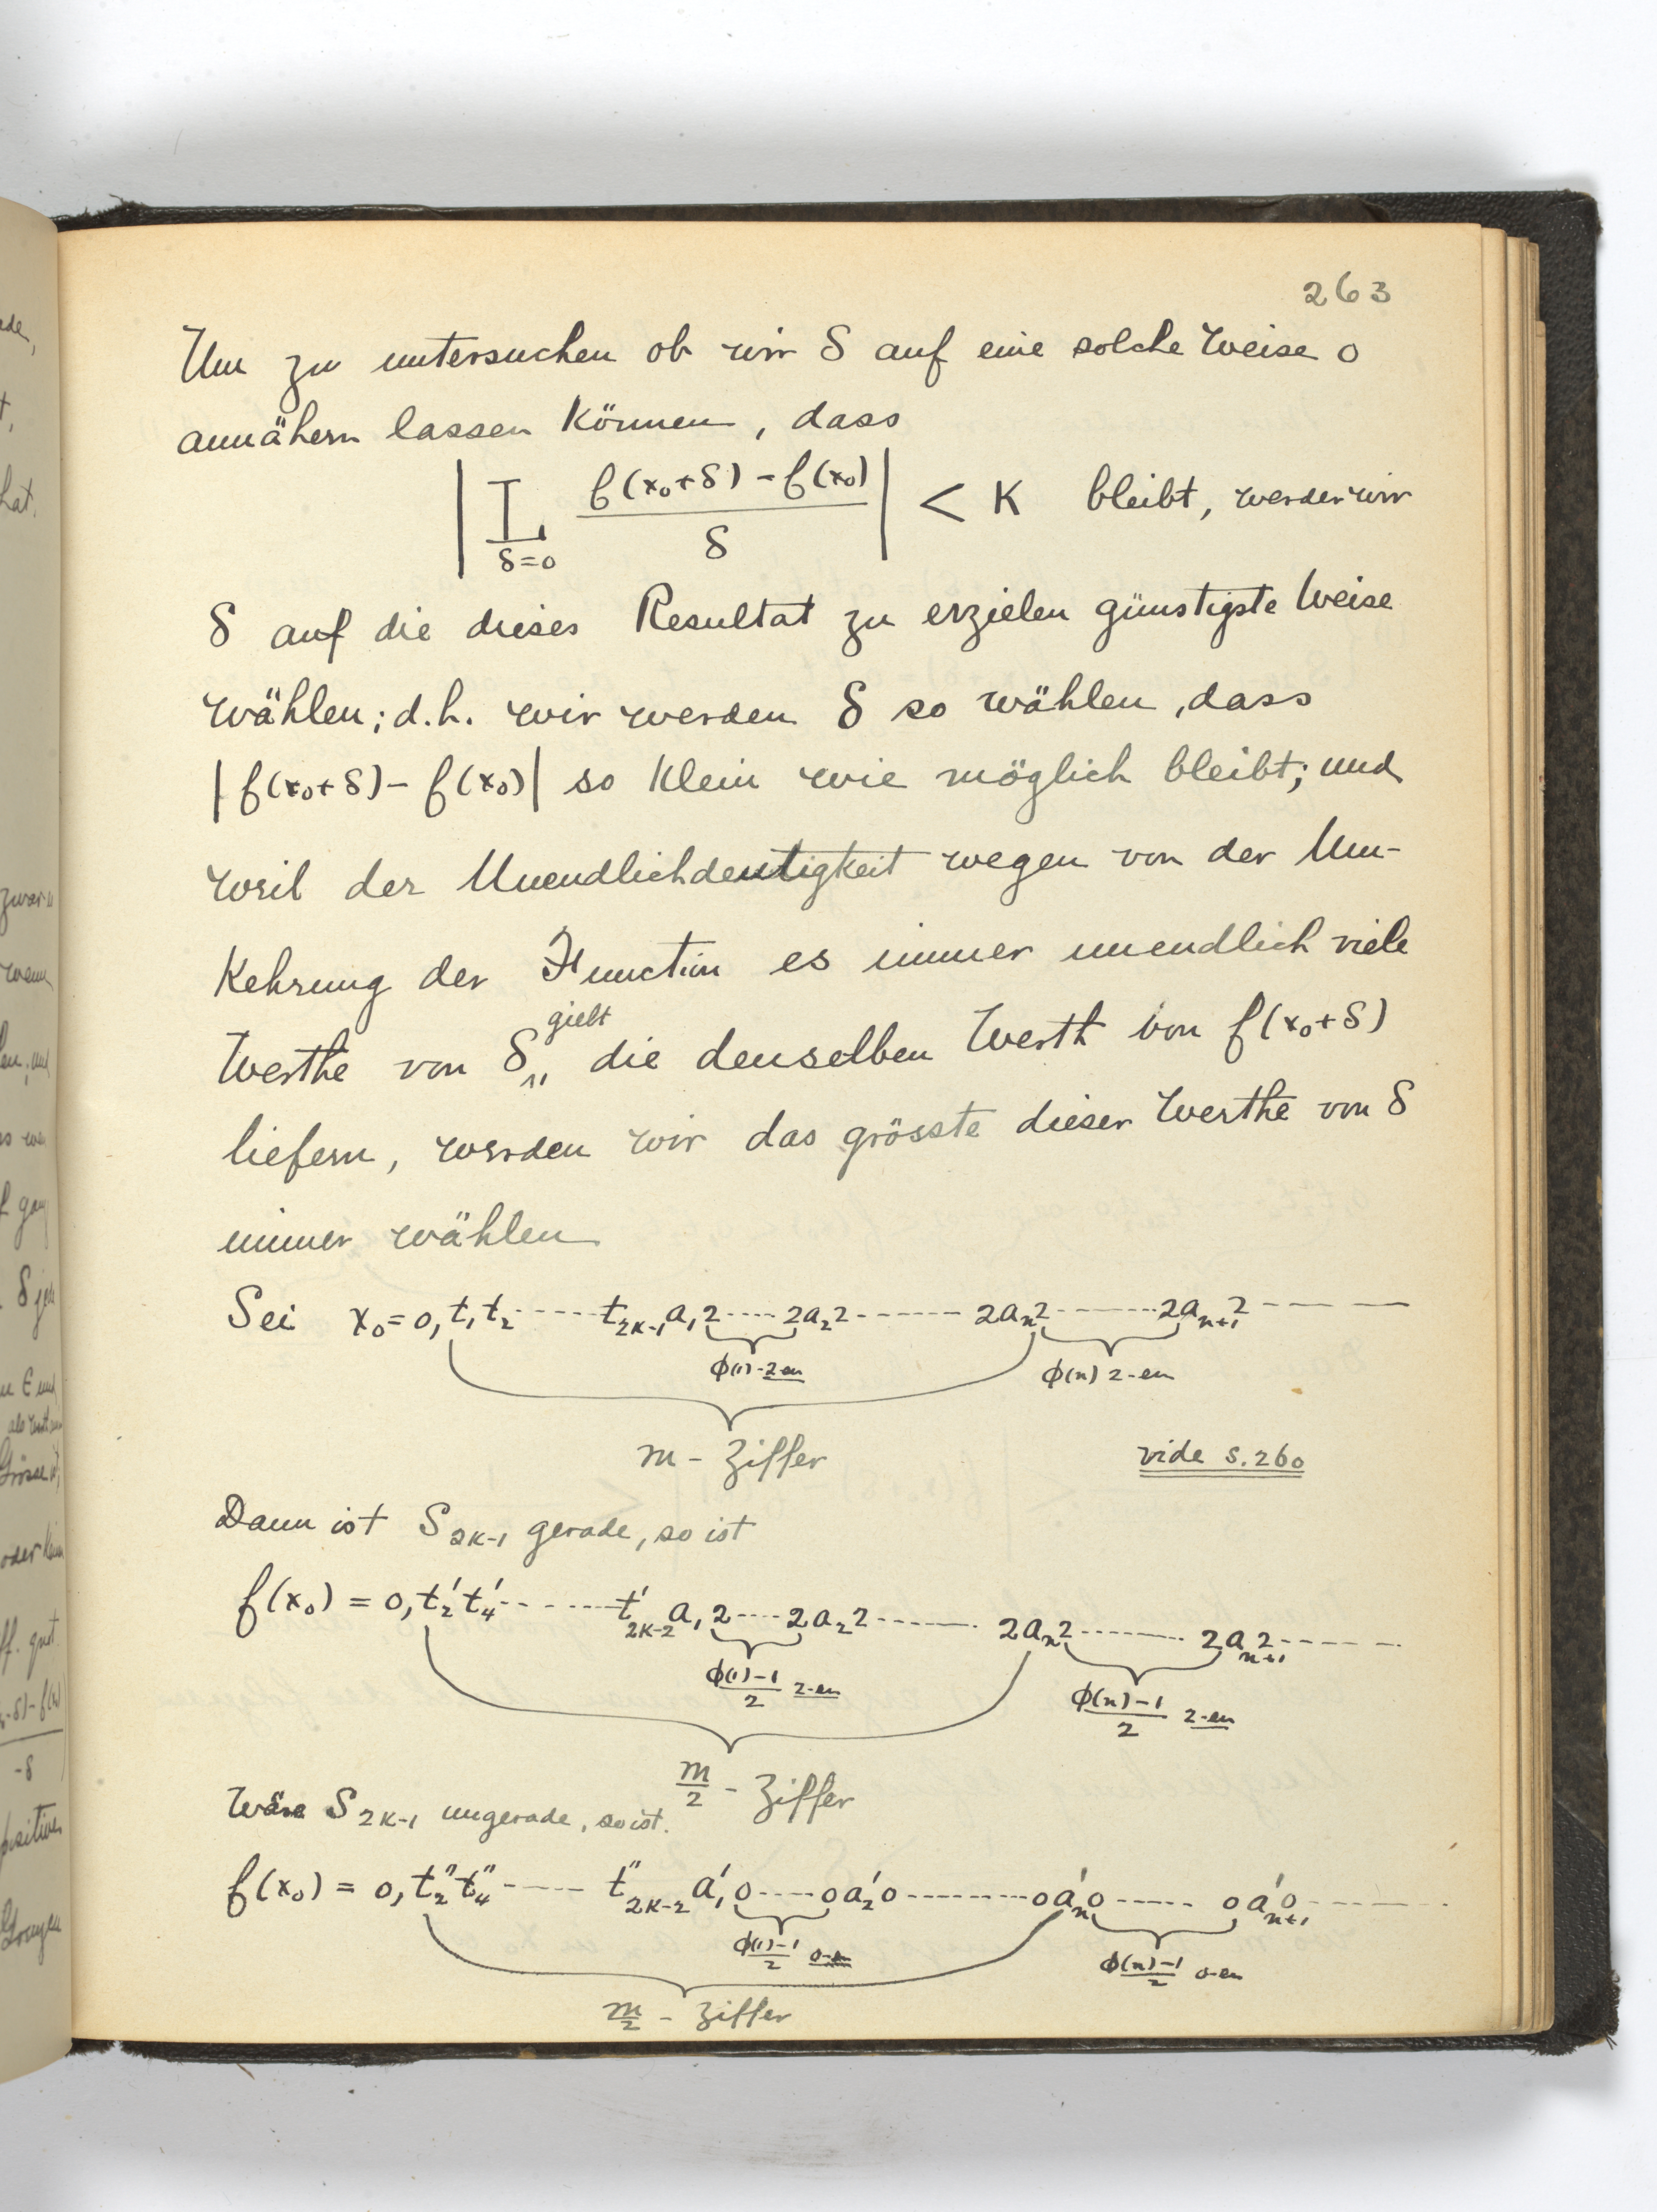 263
Um zu untersuchen ob wir δ auf eine solche Weise 0
annähern lassen können, dass
| L_{δ=0} (f(x₀+δ) - f(x₀))/δ | < K bleibt, werden wir
δ auf die dieses Resultat zu erzielen günstigste Weise
wählen; d.h. wir werden δ so wählen, dass
|f(x₀+δ) - f(x₀)| so klein wie möglich bleibt; und
weil der Unendlichdeutigkeit wegen von der Um-
kehrung der Function es immer unendlich viele
giebt
Werthe von δ,, die denselben Werth von f(x₀+δ)
liefern, werden wir das grösste dieser Werthe von δ
immer wählen
Sei x₀ = 0, t₁ t₂ ----- t_{2K-1} a₁ 2 ---- 2 a₂ 2 ------ 2 aₙ 2 ------ 2 a_{n+1} 2 ----
φ(1) - 2-en φ(n) 2-en
m - Ziffer vide S. 260
Dann ist S_{2K-1} gerade, so ist
f(x₀) = 0, t₂' t₄' ------ t'_{2K-2} a₁ 2 ---- 2 a₂ 2 ------ 2 aₙ 2 ------ 2 a_{n+1} 2 -----
(φ(1)-1)/2 2-en (φ(n)-1)/2 2-en
m/2 - Ziffer
Wäre S_{2K-1} ungerade, so ist.
f(x₀) = 0, t₂'' t₄'' ----- t''_{2K-2} a₁' 0 ---- 0 a₂' 0 ------- 0 aₙ' 0 ----- 0 a'_{n+1} 0 -----
(φ(1)-1)/2 0-en (φ(n)-1)/2 0-en
m/2 - Ziffer